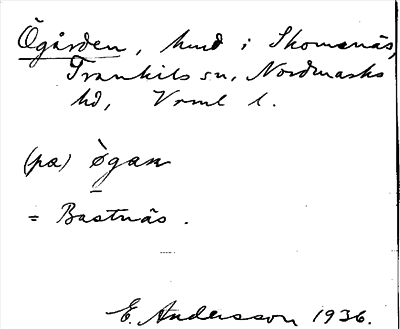 Ögården, hmd i Skomsnäs,
Trankils sn, Nordmarks
hd, Vrml l.
(pɑ) ògan
= Bastnäs.
E. Andersson 1936.